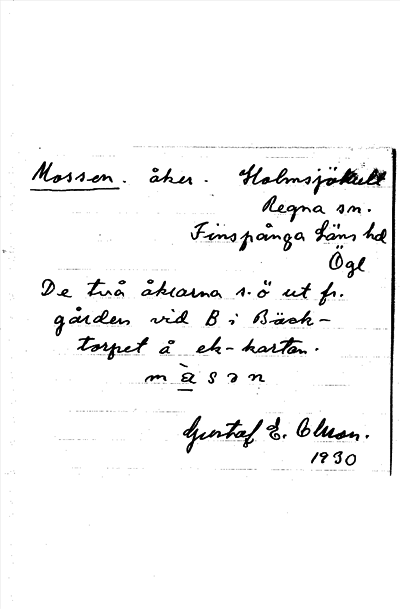 Mossen. åker. Holmsjökult
Regna sn.
Finspånga läns hd
Ögl
De två åkrarna s.ö ut fr.
gården vid B i Bäck-
torpet å ek-kartan.
m a s ə n
Gustaf E. Olsson.
1930